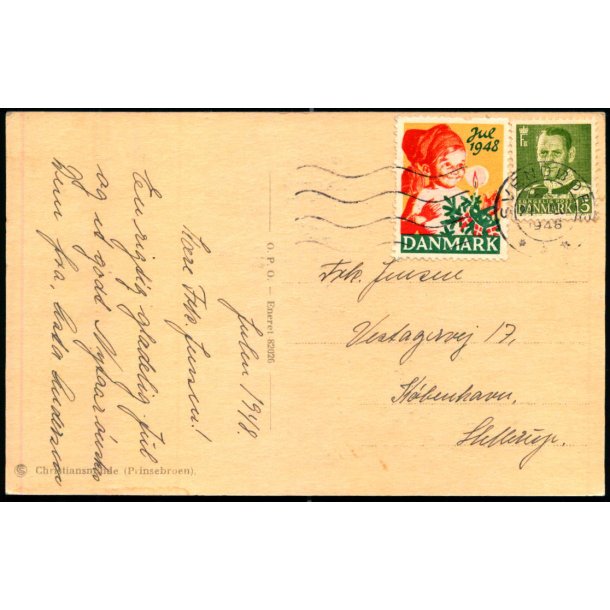 Jul
1948
DANMARK
DANMARK
15
SVENDBORG
1948
Julen 1948.
Kære Frk. Jensen!
En rigtig glædelig Jul
og et godt Nytaar ønskes
Dem fra,
O. P. O. — Eneret 82026
Christiansminde (Prinsebroen).
Frk. Jensen
Vestagervej 17,
København,
Hellerup.